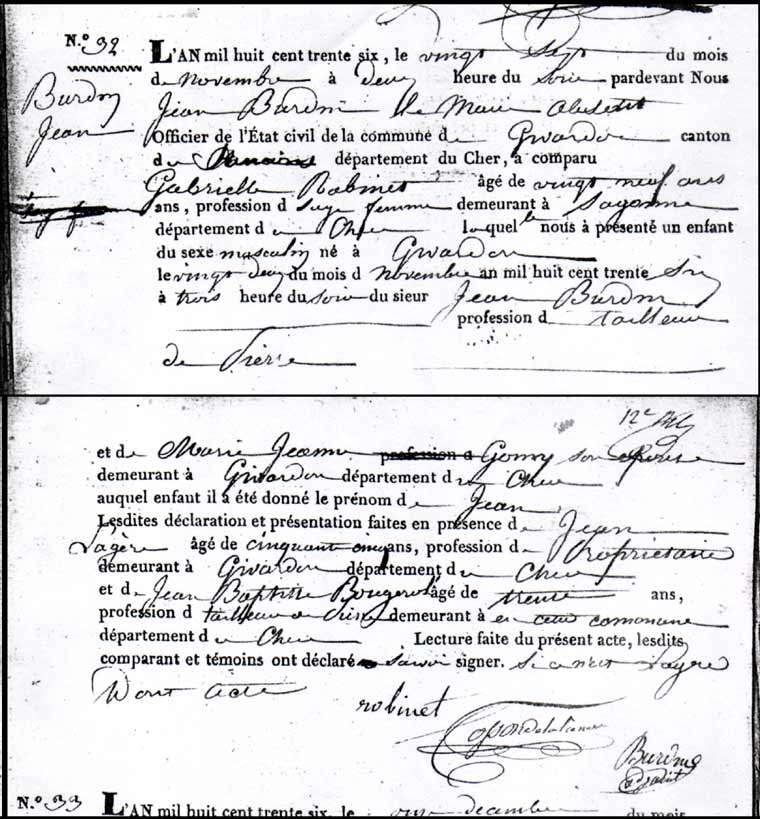 N.º 32
Burdin
Jean
L'AN mil huit cent trente six, le vingt sept du mois
de novembre à deux heure du soir pardevant Nous
Jean Burdin le Maire absent
Officier de l'État civil de la commune de Givardon canton
de Sancoins département du Cher, a comparu
Gabrielle Robinet âgé de vingt neuf ans
ans, profession d sage femme demeurant à Sagonne
département d u Cher laquelle nous à présenté un enfant
du sexe masculin né à Givardon
le vingt deux du mois d novembre an mil huit cent trente six
à trois heure du soir du sieur Jean Burdin
profession d tailleur
de Pierre
et de Marie Jeanne profession d Gonny son épouse
demeurant à Givardon département du Cher
auquel enfant il a été donné le prénom de Jean
Lesdites déclaration et présentation faites en présence de Jean
Lagère âgé de cinquante cinq ans, profession de Propriétaire
demeurant à Givardon département du Cher
et de Jean Baptiste âgé de trente ans,
profession d tailleur de Pierre demeurant à en cette commune
département du Cher Lecture faite du présent acte, lesdits
comparant et témoins ont déclaré savoir signer. si ce n'est Lagère
Dont acte
robinet
Burdin
adjoint
N.º 33 L'AN mil huit cent trente six, le onze decembre du mois